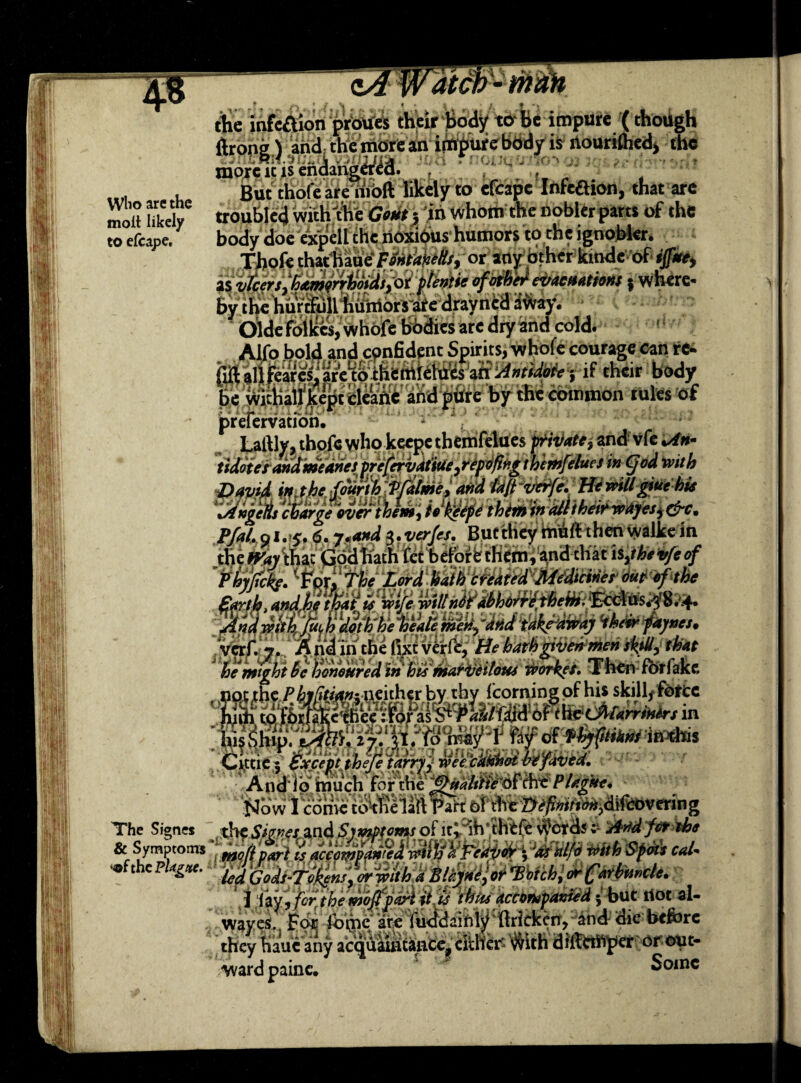 48
A Watch-man
the infection proues their body to be impure (though
strong) and the more an impure body is nourished, the
more it is endangered.
But those are most likely to escape Infection, that are
troubled with the Gout; in whom the nobler parts of the
body doe expell the noxious humors to the ignobler.
Those that haue Fontanells, or any other kinde of issue,
as vlcers, hæmorrhoids, or plentie of other evacuations; where-
by the hurtfull humors are drayned away.
Olde folkes, whose bodies are dry and cold.
Also bold and confident Spirits, whose courage can re-
sist all feares, are to themselues an Antidote; if their body
be withall kept cleane and pure by the common rules of
preservation.
Lastly, those who keepe themselues private, and vse An-
tidotes and meanes preservatiue, reposing themselues in God with
David in the fourth Psalme, and last verse. He will giue his
Angells charge over them, to keepe them in all their wayes, &c.
Psal. 91. 5. 6. 7. and 3. verses. But they must then walke in
the Way that God hath set before them, and that is, the vse of
Physicke. For, The Lord hath created Medicines out of the
Earth, and he that is wise will not abhorre them. Ecclus. 38. 4.
And with such doth he heale men, and take away their paynes.
vers. 7. And in the sixt verse, He hath given men skill, that
he might be honoured in his marveilous workes. Then forsake
not the Physitian; neither by thy scorning of his skill, force
him to forsake thee: for as St Paul said of the Marriners in
his Ship. Acts. 27. 31. so may I say of Physitians in this
Cittie; Except these tarry, wee cannot be saved.
And so much for the Qualitie of the Plague.
Now I come to the last Part of the Definition, discovering
the Signes and Symptoms of it; in these words: And for the
most part is accompanied with a Feaver; as also with Spots cal-
led Gods-Tokens, or with a Blayne, or Botch, or Carbuncle.
I say, for the most part it is thus accompanied; but not al-
wayes. For some are suddainly stricken, and die before
they haue any acquaintance, either with distemper or out-
ward paine.
Some
Who are the
most likely
to escape.
The Signes
& Symptoms
of the Plague.